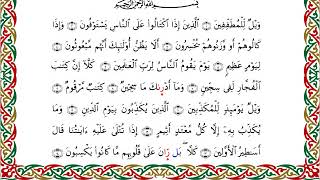 بِسْمِ اللَّهِ الرَّحْمَٰنِ الرَّحِيمِ
وَيْلٌ لِّلْمُطَفِّفِينَ ۝ الَّذِينَ إِذَا اكْتَالُوا عَلَى النَّاسِ يَسْتَوْفُونَ ۝ وَإِذَا
كَالُوهُمْ أَو وَّزَنُوهُمْ يُخْسِرُونَ ۝ أَلَا يَظُنُّ أُولَٰئِكَ أَنَّهُم مَّبْعُوثُونَ ۝
لِيَوْمٍ عَظِيمٍ ۝ يَوْمَ يَقُومُ النَّاسُ لِرَبِّ الْعَالَمِينَ ۝ كَلَّا إِنَّ كِتَابَ
الْفُجَّارِ لَفِي سِجِّينٍ ۝ وَمَا أَدْرَاكَ مَا سِجِّينٌ ۝ كِتَابٌ مَّرْقُومٌ ۝
وَيْلٌ يَوْمَئِذٍ لِّلْمُكَذِّبِينَ ۝ الَّذِينَ يُكَذِّبُونَ بِيَوْمِ الدِّينِ ۝ وَمَا
يُكَذِّبُ بِهِ إِلَّا كُلُّ مُعْتَدٍ أَثِيمٍ ۝ إِذَا تُتْلَىٰ عَلَيْهِ آيَاتُنَا قَالَ
أَسَاطِيرُ الْأَوَّلِينَ ۝ كَلَّا ۖ بَلْ رَانَ عَلَىٰ قُلُوبِهِم مَّا كَانُوا يَكْسِبُونَ ۝